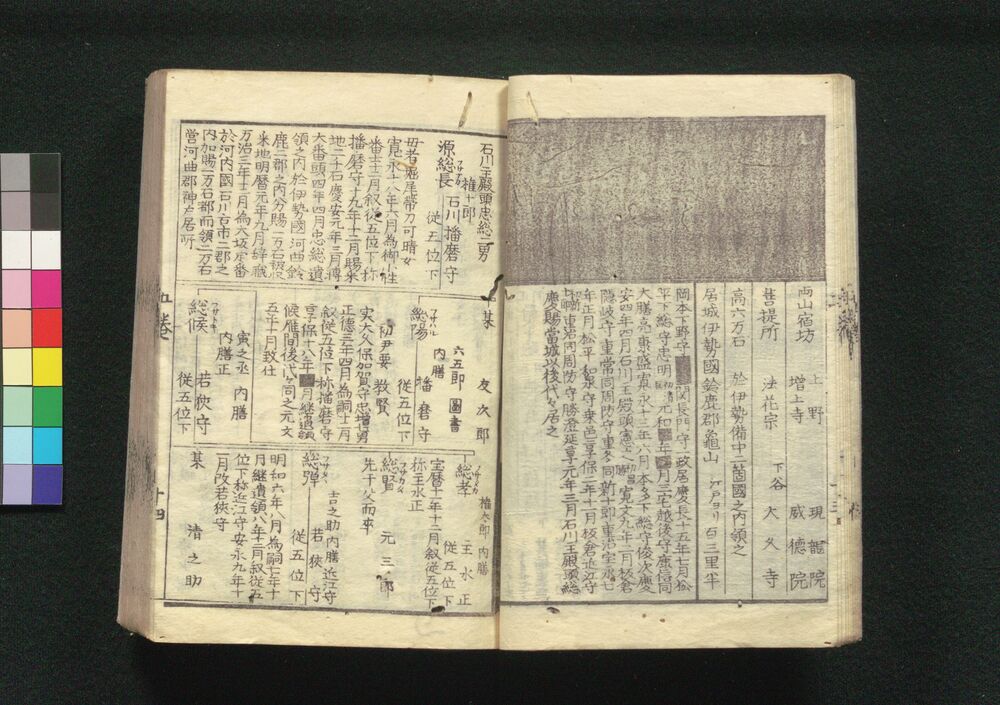 両山宿坊 上野 現龍院
増上寺 威德院
菩提所 法花宗 下谷 大久寺
高六万石 於伊勢備中二箇國之内領之
居城伊勢國鈴鹿郡龜山 江戸ヨリ百三里半
岡本下野守 関長門守一政居慶長十五年七月松
平下総守忠明 元和 年 月三宅越後守康信同
大膳亮康盛寛永十三年六月本多下総守俊次慶
安四年四月石川主殿頭憲之 寛文九年二月板倉
隠岐守重常同周防守重冬同新十郎重治宝永七
年正月松平和泉守乗邑享保二年十一月板倉近江守
重治同周防守勝澄延享元年三月石川主殿頭総
慶賜當城以後代々居之
石川主殿頭忠総二男
権十郎
源総長 石川播磨守
従五位下
母者堀尾帯刀可晴女
寛永十八年六月為御小性
番士十二月叙従五位下称
播磨守十九年十二月賜采
地二千石慶安元年三月轉
大番頭四年四月忠総遺
領之内於伊勢國河曲鈴
鹿二郡之内分賜一万石被
采地明暦元年九月辞職
万治三年十二月為大坂定番
於河内國石川古市二郡之
内加賜一万石都而領二万石
營河曲郡神戸居所
某 友次郎
六五郎 圖書
内膳
総陽 播磨守
従五位下
初尹要 敎賢
実大久保加賀守忠増男
正德三年四月為嗣十二月
叙従五位下称播磨守
享保十八年 月継遺領
候雁間後代々同之元文
五年十月致仕
寅之丞 内膳
内膳正
総候 若狭守
従五位下
権太郎 内膳
総孝 主水正
従五位下
宝暦十一年十二月叙従五位下
称主水正
総賢 元三郎
先于父而卒
吉之助 内膳 近江守
総弾 若狭守
従五位下
明和六年八月為嗣七年十
月継遺領八年十二月叙従五
位下称近江守安永九年十
一月改若狭守
某 清之助
五巻
十四